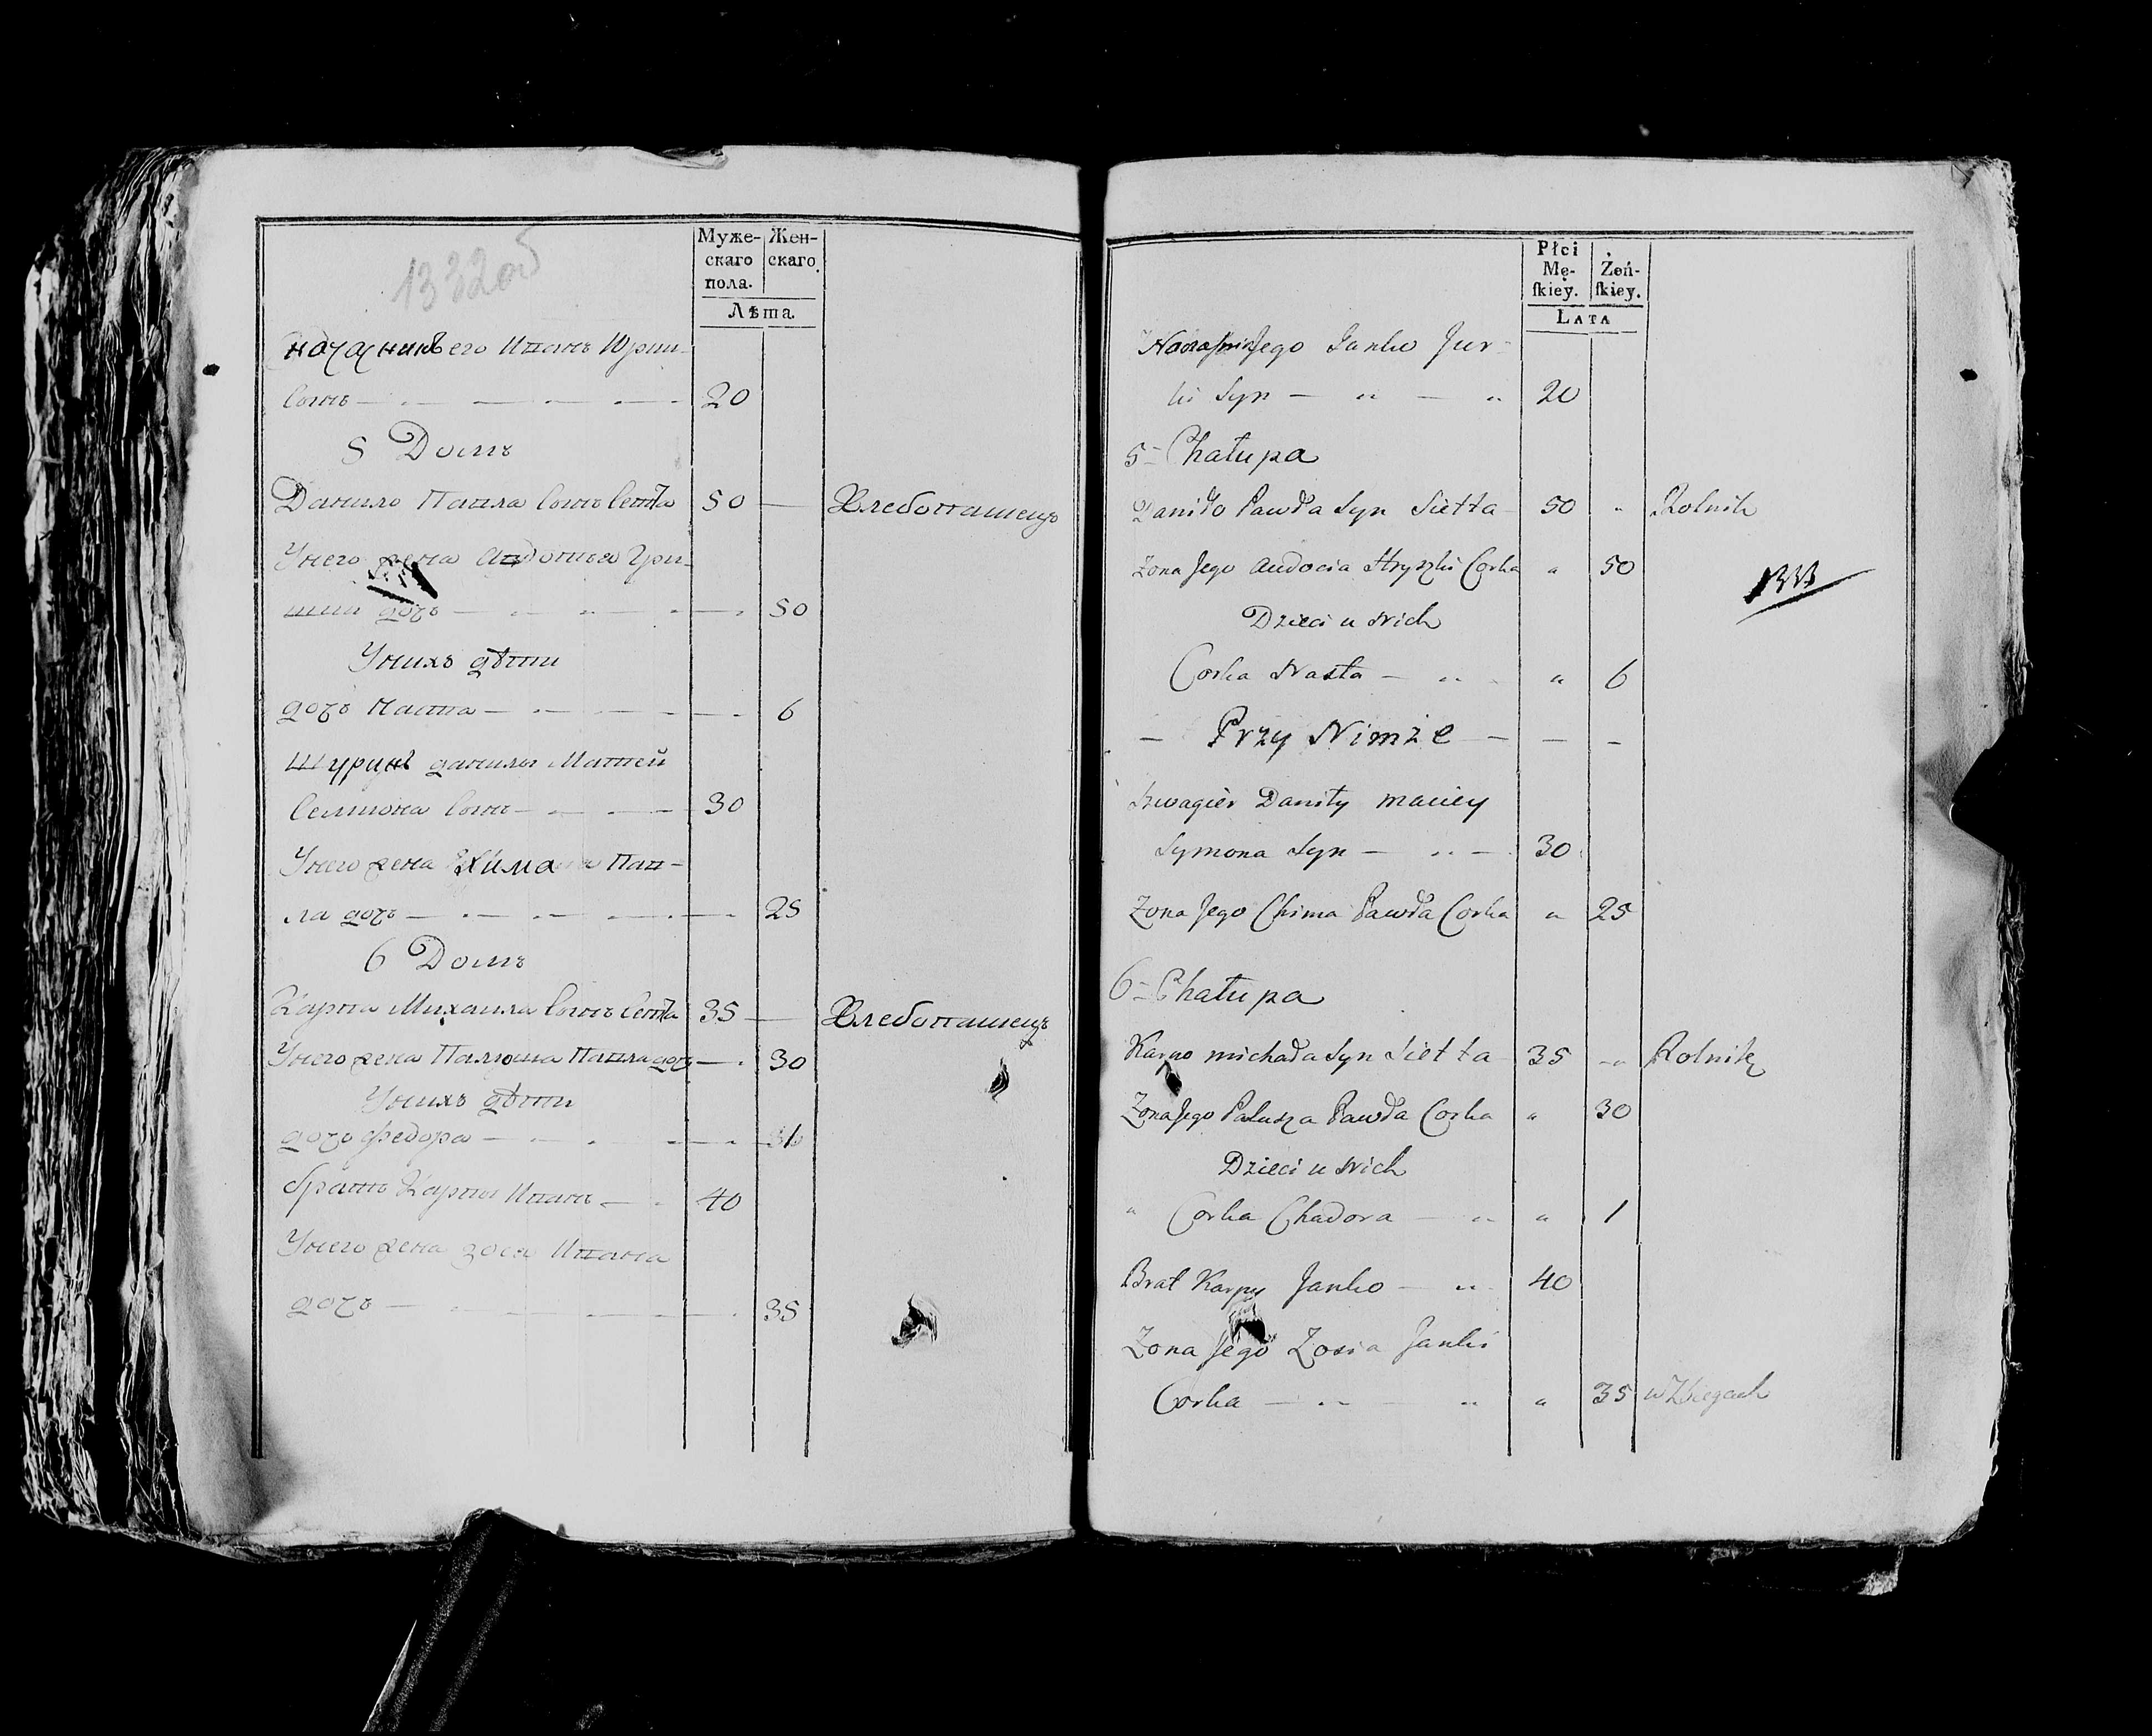 1332 об
Муже-
скаго
пола.
Жен-
скаго.
Лѣта.
его Иванъ Юрки
сынъ 20
5 Домъ
Данило Павла сынъ 50 Хлебопашецъ
Унего жена Авдотья Гри-
шки дочь 50
Унихъ дѣти
дочь Наста 6
Шуринъ данилы Матвей
Семиона сынъ 30
Унего жена Хима Пав-
ла дочь 25
6 Домъ
Карпа Михаила сынъ 35 Хлебопашецъ
Унего жена Палюша Павла дочь 30
Унихъ дѣти
дочь Федора 1
братъ Карпы Иванъ 40
Унего жена зося Ивана
дочь 35
Płci
Mę-
ſkiey.
Żeń-
ſkiey.
LATA
Jego Janko Jur-
ki Syn 20
5 Chałupa
Daniło Pawła Syn 50 Rolnik
Zona Jego Audocia Hryszki Corka 50
1333
Dzieci u Nich
Corka Nasta 6
Przy Nimże
Szwagier Daniły Maciey
Symona Syn 30
Zona Jego Chima Pawła Corka 25
6 Chałupa
Karpo Michała Syn 35 Rolnik
Zona Jego Palusza Pawła Corka 30
Dzieci u Nich
Corka Chadora 1
Brat Karpy Janko 40
Zona Jego Zosia Janki
Corka 35